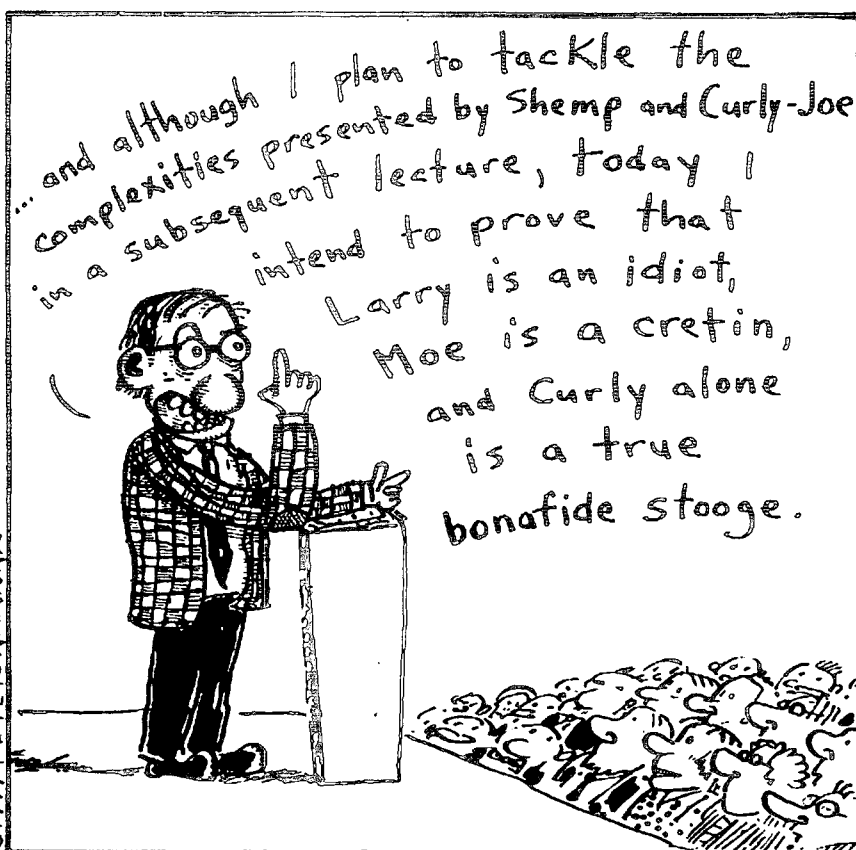 ...and although I plan to tackle the
complexities presented by Shemp and Curly-Joe
in a subsequent lecture, today I
intend to prove that
Larry is an idiot,
Moe is a cretin,
and Curly alone
is a true
bonafide stooge.